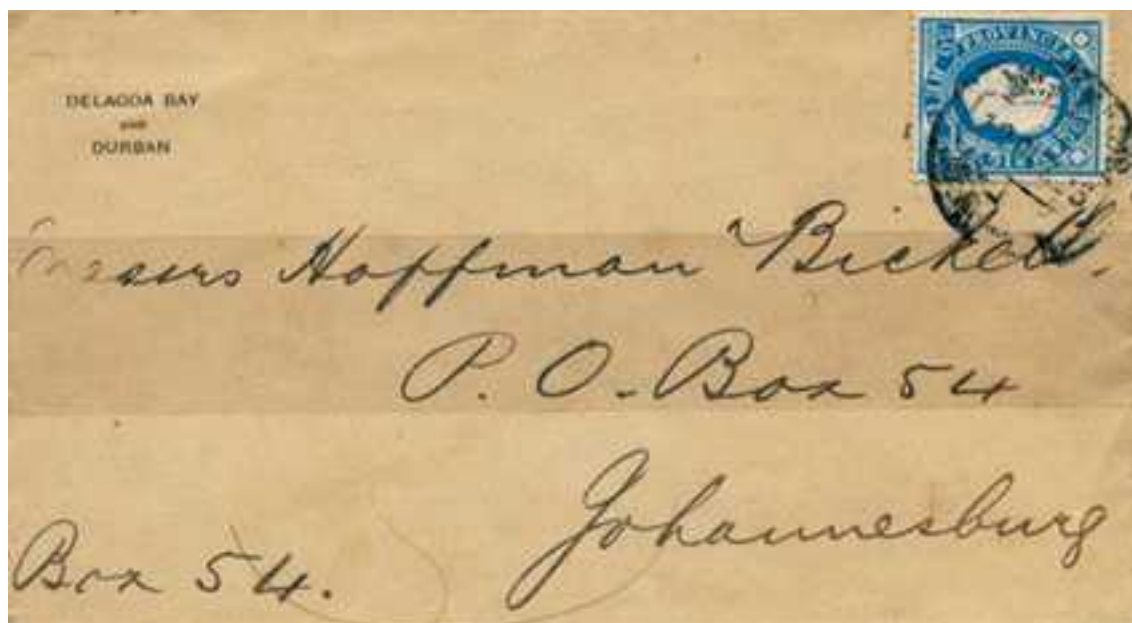 DELAGOA BAY
and
DURBAN
Messrs Hoffman Bickett,
P. O. Box 54
Johannesburg
Box 54.